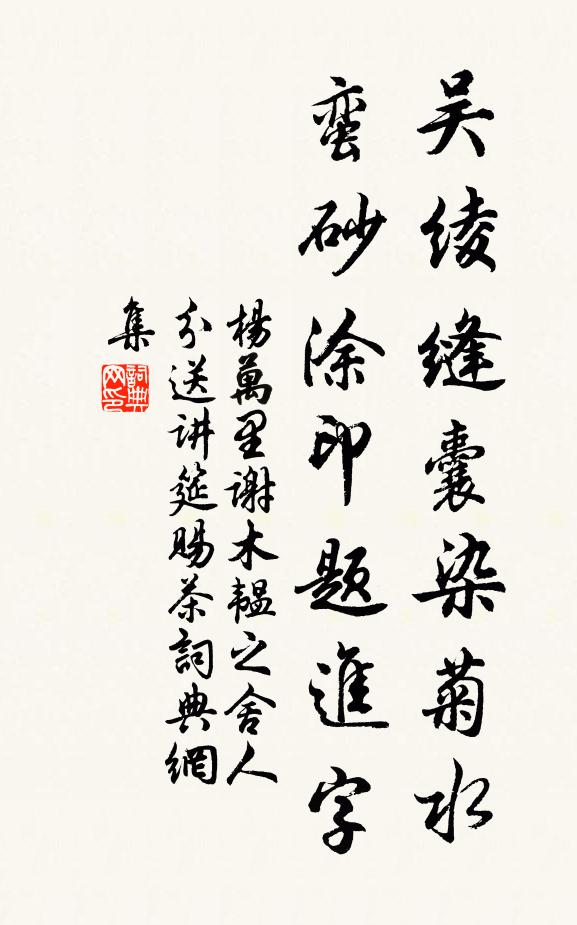 吴绫缝囊染菊水
蛮砂涂印题進字
楊萬里谢木韫之舍人
分送讲筵赐茶詞典網
集
詞典
网印